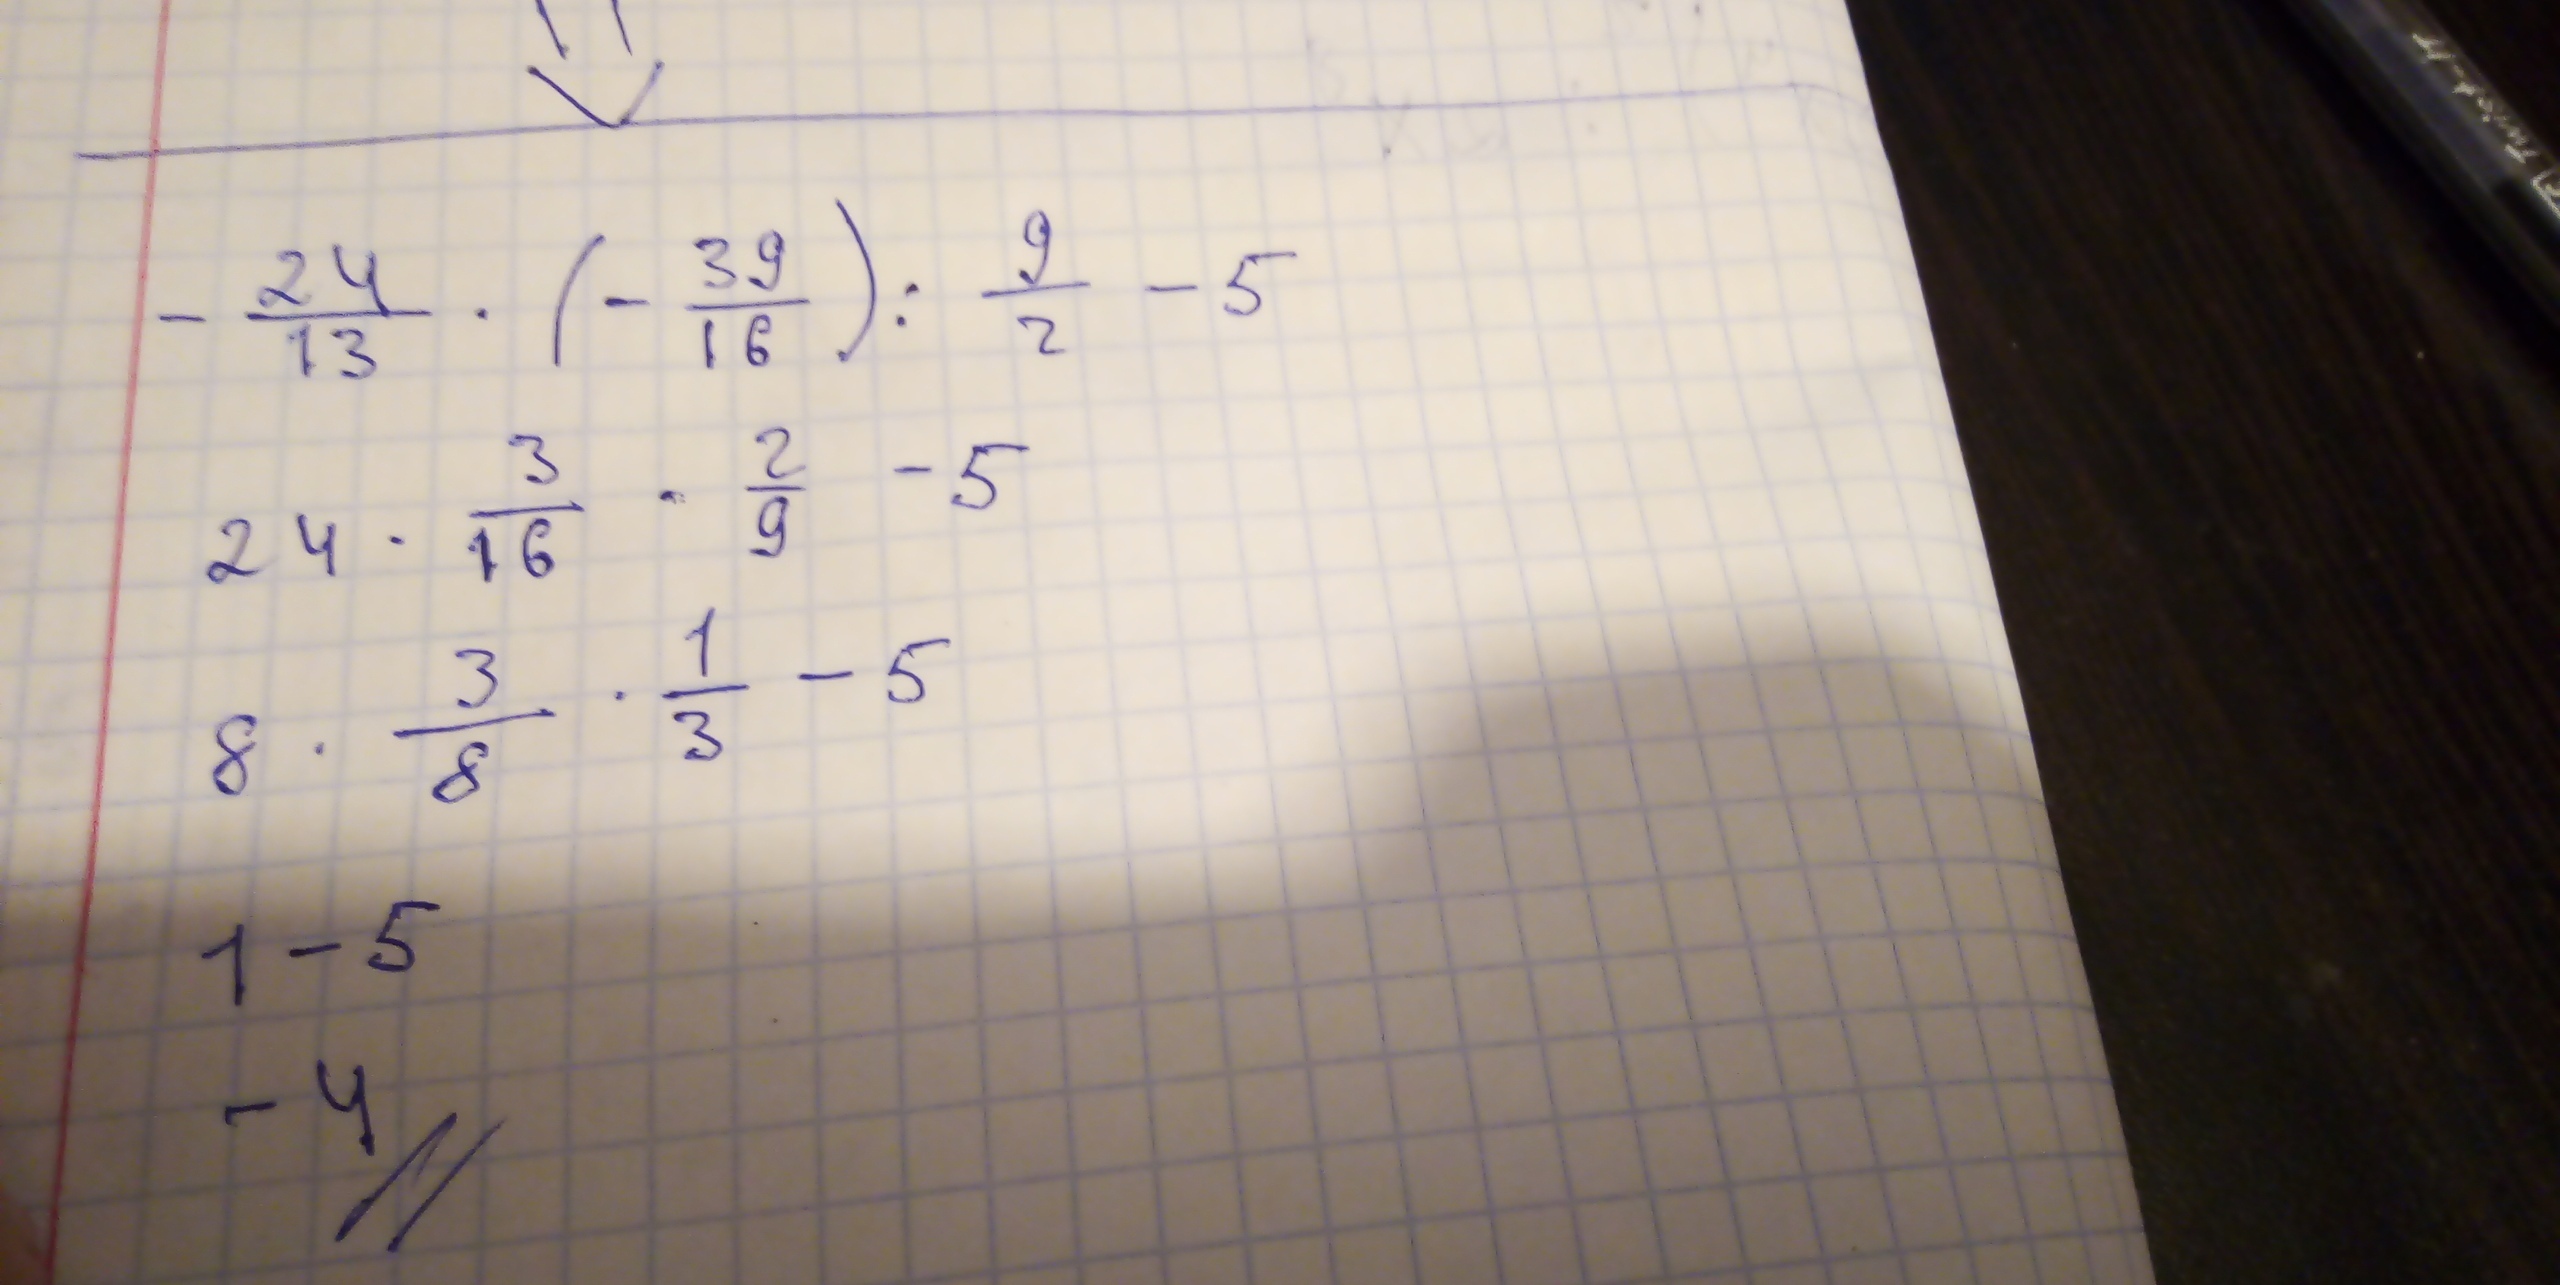 - 24/13 · (- 39/16) : 9/2 - 5
24 · 3/16 · 2/9 - 5
8 · 3/8 · 1/3 - 5
1 - 5
- 4